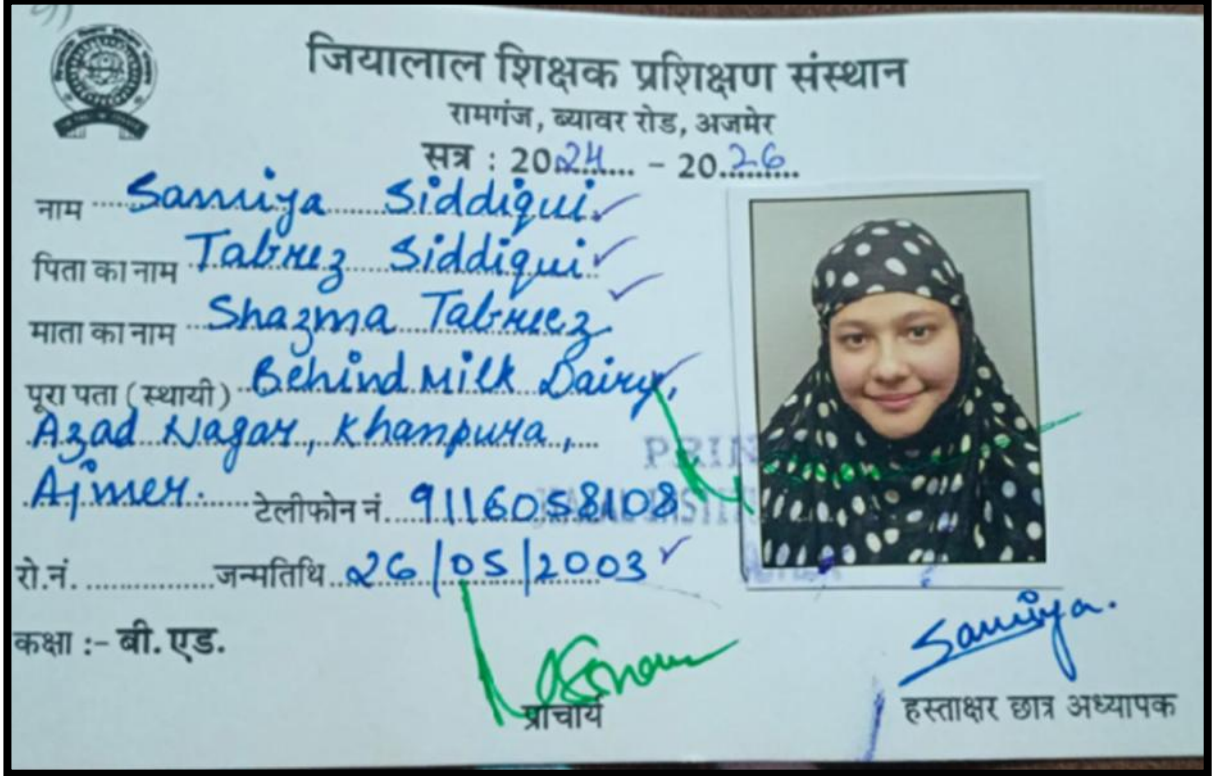 जियालाल शिक्षक प्रशिक्षण संस्थान
रामगंज, ब्यावर रोड, अजमेर
सत्र : 2024 - 2026
नाम Samiya Siddiqui
पिता का नाम Tabrez Siddiqui
माता का नाम Shazma Tabreez
पूरा पता (स्थायी) Behind Milk Dairy,
Azad Nagar, Khanpura,
Ajmer. टेलीफोन नं. 9116058108
रो.नं. जन्मतिथि 26/05/2003
कक्षा :- बी.एड.
Samiya.
प्राचार्य
हस्ताक्षर छात्र अध्यापक